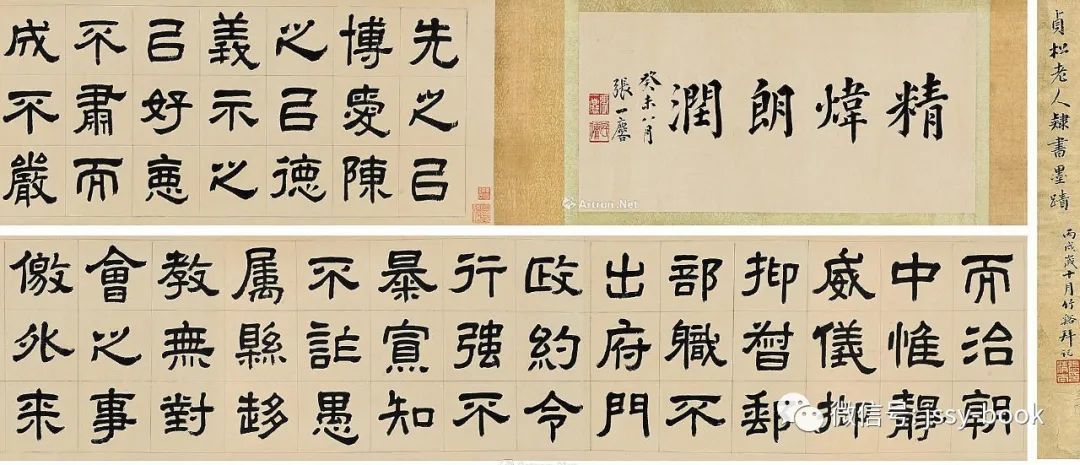 貞松老人隸書墨蹟
丙戌歲十月竹谿拜記
精煒朗潤
癸未八月
張一麐
Artron.Net
先之㠯
博愛陳
之㠯德
義示之
㠯好惡
不肅而
成不嚴
而治朝
中惟靜
威儀抑
抑督郵
部職不
出府門
政約令
行強不
暴寡知
不詐愚
属縣趍
教無對
會之事
徼外来
微信号: jssy-book